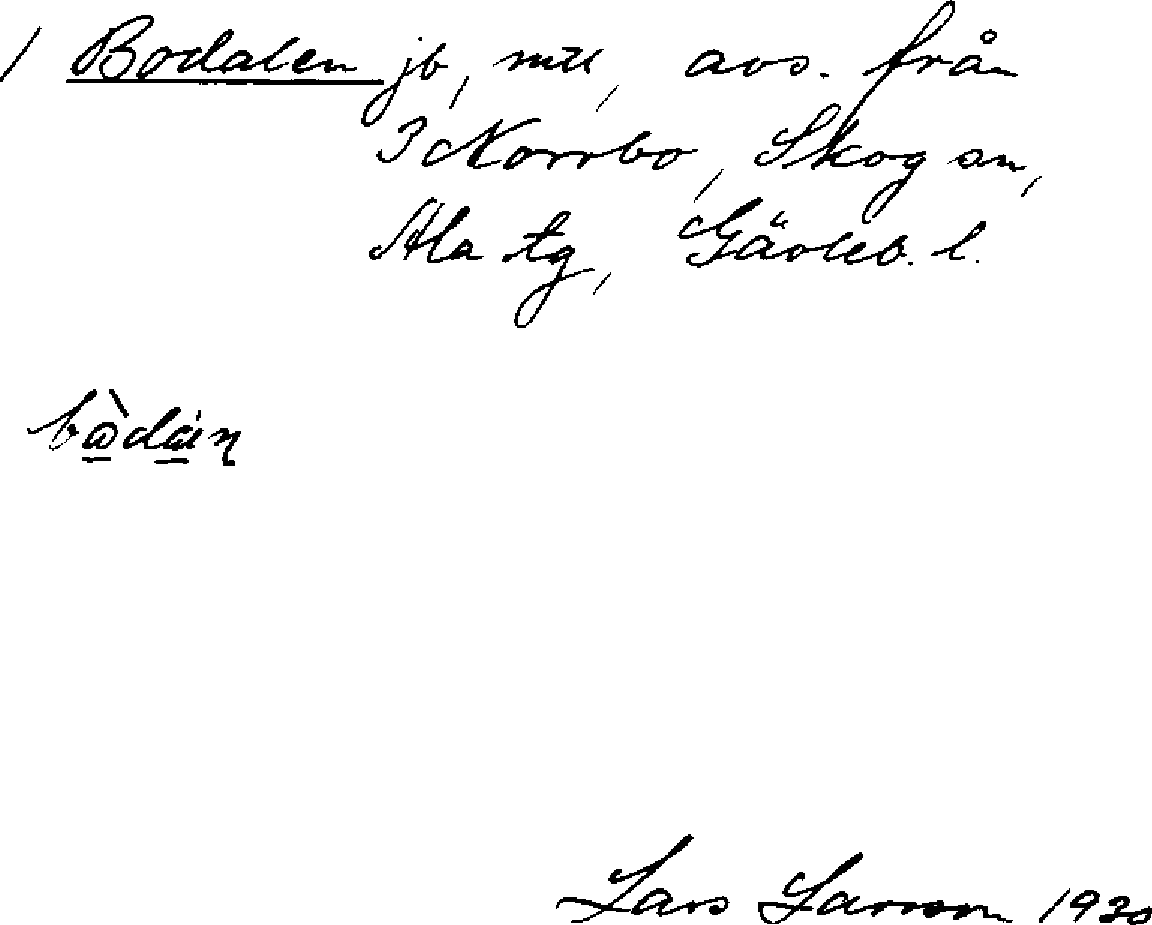 1 Bodalen jb, mtl, avs. från
3 Norrbo, Skog sn,
Ala tg, Gävleb. l.
Lars Larsson 1930